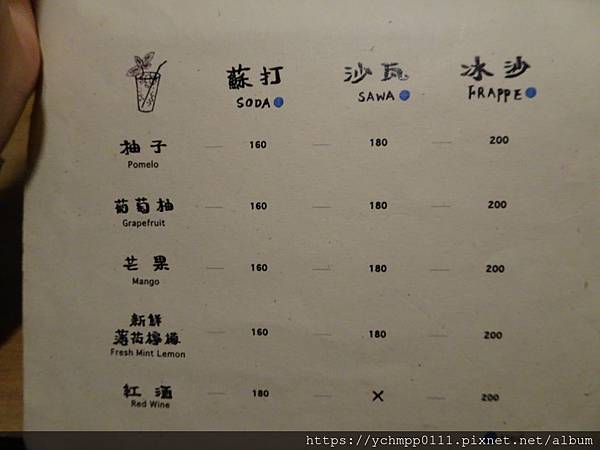 蘇打 沙瓦 冰沙
SODA SAWA FRAPPE
柚子 160 180 200
Pomelo
葡萄柚 160 180 200
Grapefruit
芒果 160 180 200
Mango
新鮮
薄荷檸檬 160 180 200
Fresh Mint Lemon
紅酒 180 × 200
Red Wine
https://ychmpp0111.pixnet.net/album